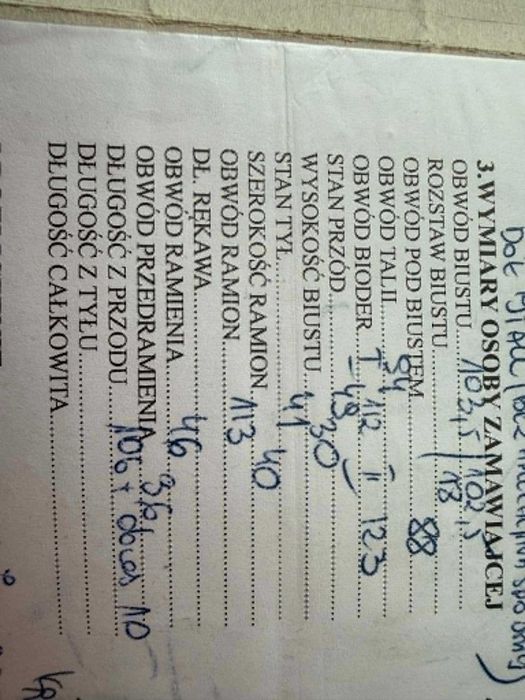 Dół
3.WYMIARY OSOBY ZAMAWIAJĄCEJ
OBWÓD BIUSTU 103,5 / 102,5
ROZSTAW BIUSTU 18
OBWÓD POD BIUSTEM 88
OBWÓD TALII 94
OBWÓD BIODER I - 112 II 123
STAN PRZÓD 49
WYSOKOŚĆ BIUSTU 30
STAN TYŁ 41
SZEROKOŚĆ RAMION 40
OBWÓD RAMION 113
DŁ. RĘKAWA
OBWÓD RAMIENIA 46
OBWÓD PRZEDRAMIENIA 36
DŁUGOŚĆ Z PRZODU 106 + obcas 10
DŁUGOŚĆ Z TYŁU
DŁUGOŚĆ CAŁKOWITA